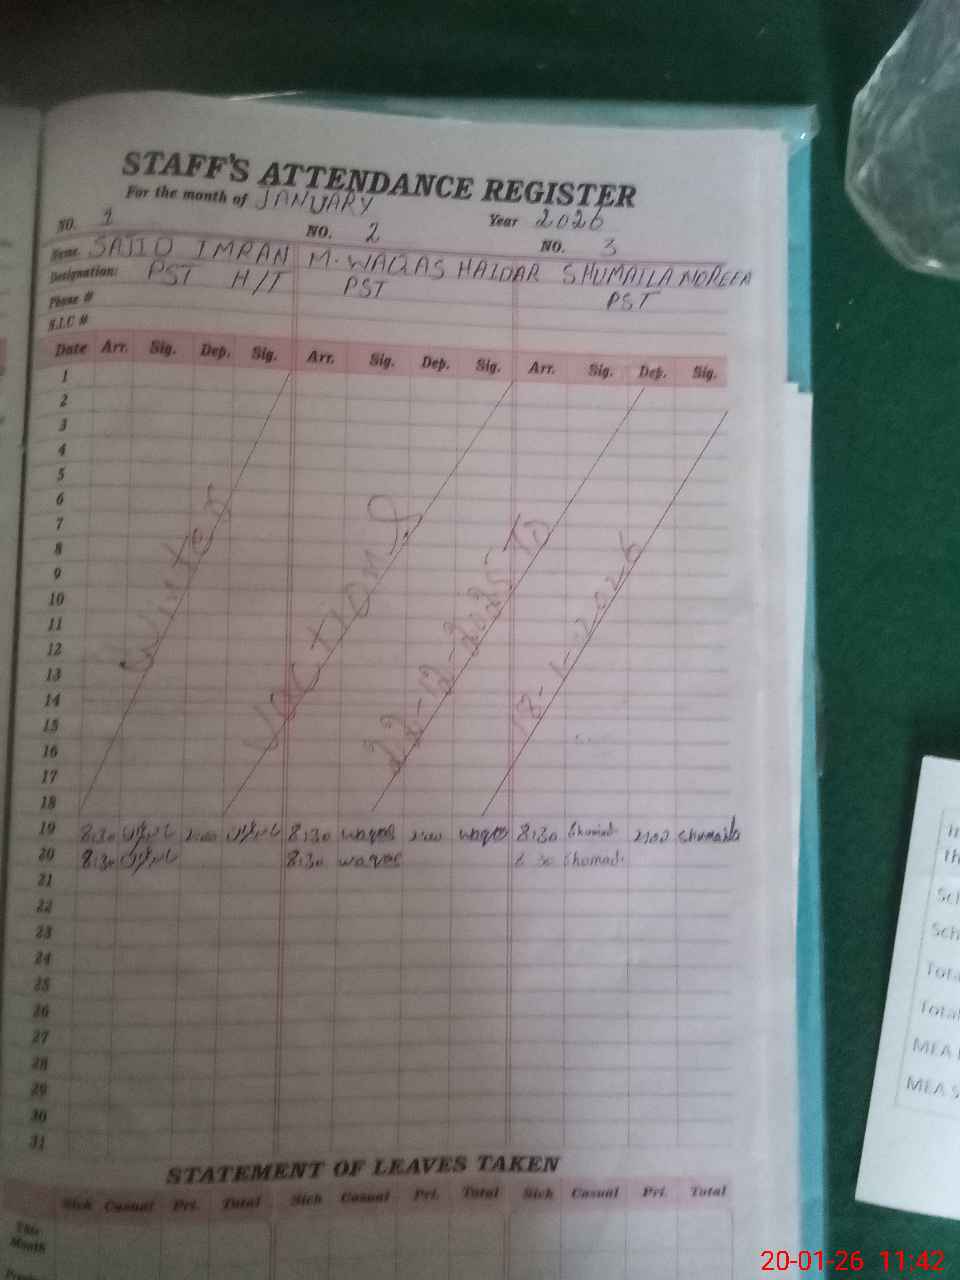 STAFF'S ATTENDANCE REGISTER
For the month of JANUARY Year 2026
NO. 1 NO. 2 NO. 3
Name SAJID IMRAN M. WAQAS HAIDAR SHUMAILA NOREEN
Designation: PST H/T PST PST
Phone #
N.I.C #
Date Arr. Sig. Dep. Sig. Arr. Sig. Dep. Sig. Arr. Sig. Dep. Sig.
1
2
3
4
5
6
7
8
9
10
11
12
13
14
15
16
17
18
Winter
22-12-2025 TO
18-1-2026
19 8:30 2:00 8:30 waqas 2:00 waqas 8:30 Shumaila 2:00 Shumaila
20 8:30 8:30 waqas 8:30
21
22
23
24
25
26
27
28
29
30
31
STATEMENT OF LEAVES TAKEN
Sick Casual Pri. Total Sick Casual Pri. Total Sick Casual Pri. Total
This
Month
Th
Sch
Sch
Tota
Total
MEA
MEA S
20-01-26 11:42